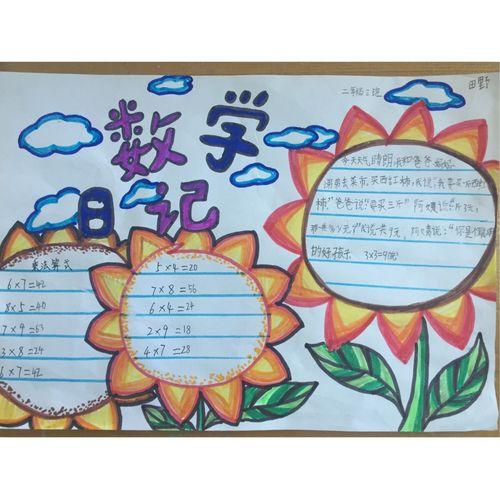 田野
二年级三班
数学
日记
今天天气晴朗,我和爸爸妈妈
去菜市买西红柿,我说:"我要买
柿"爸爸说:"要买三斤"阿姨说:"一斤3元,
多少元?"我说:"共9元,阿姨说:"你是个聪明
的好孩子 3×3=9(元)
乘法算式
6×7=42
8×5=40
7×9=63
3×8=24
6×7=42
5×4=20
7×8=56
6×4=24
2×9=18
4×7=28